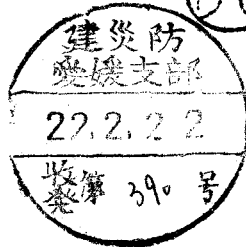 建災防
愛媛支部
22.2.22
収
発
第 390 号